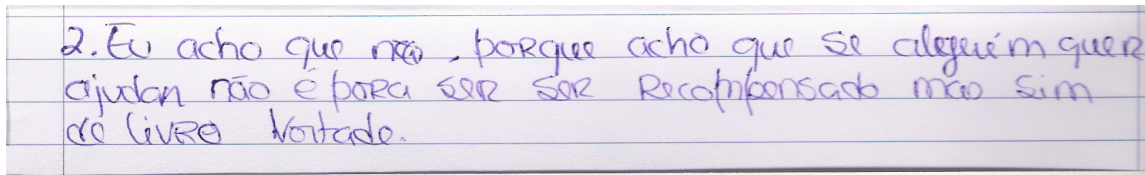 2. Eu acho que não, porque acho que se aleguém quer
ajudan não é para ser ser Recompensado mão sim
de livro Vortade.